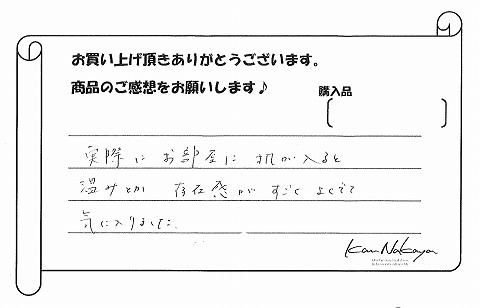 お買い上げ頂きありがとうございます。
商品のご感想をお願いします♪
購入品
実際に お部屋に 机が入ると
温みとか 存在感が すごく よくでて
気に入りました。
Kan Nakaya